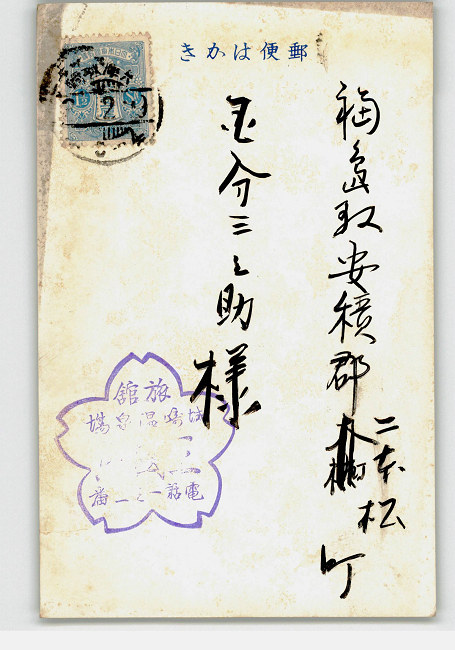 きかは便郵
福島縣安積郡
二本松町
国分三之助様
館旅
場崎温泉城
三
番一二一話電